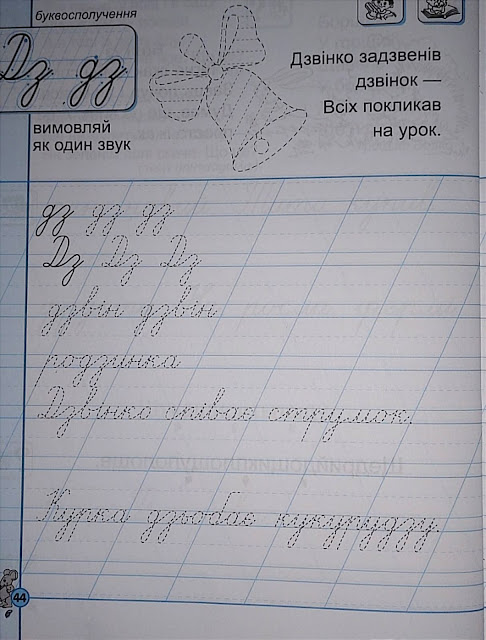 буквосполучення
Дз дз
вимовляй
як один звук
Дзвінко задзвенів
дзвінок —
Всіх покликав
на урок.
дз дз дз
Дз Дз Дз
дзвін дзвін
родзинка
Дзвінко співає струмок.
Курка дзьобає кукурудзу.
44